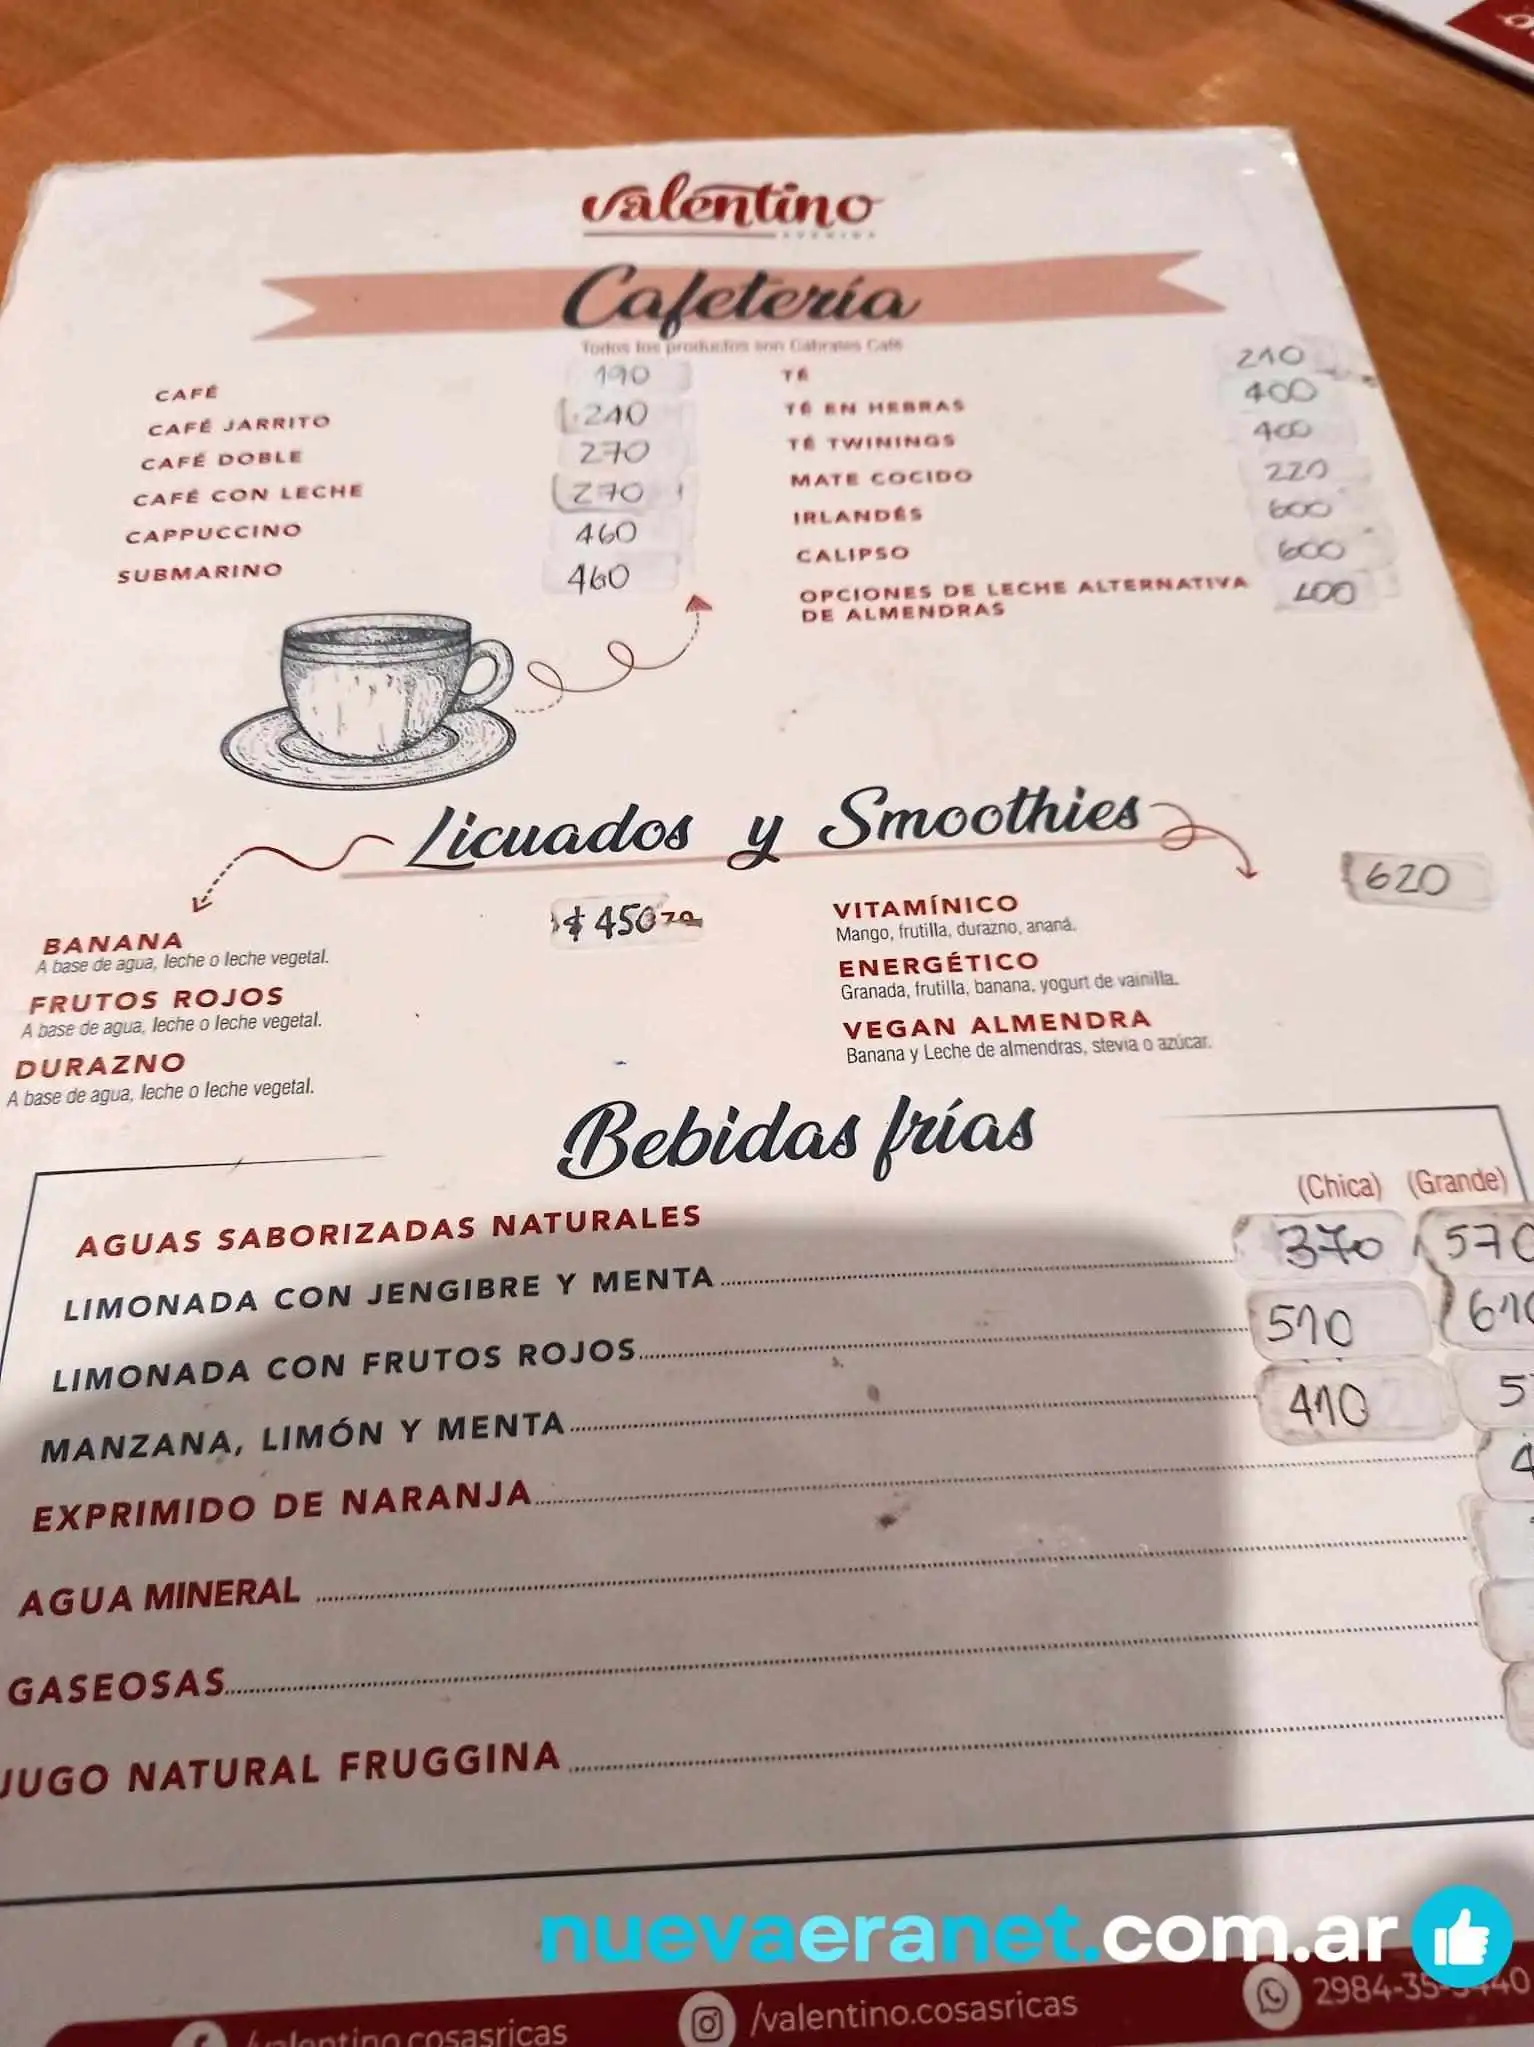 valentino
AVENIDA
Cafetería
Todos los productos son Cabrales Café
CAFÉ 190
CAFÉ JARRITO 240
CAFÉ DOBLE 270
CAFÉ CON LECHE 270
CAPPUCCINO 460
SUBMARINO 460
TÉ 210
TÉ EN HEBRAS 400
TÉ TWININGS 400
MATE COCIDO 220
IRLANDÉS 600
CALIPSO 600
OPCIONES DE LECHE ALTERNATIVA
DE ALMENDRAS 100
Licuados y Smoothies
$ 450
BANANA
A base de agua, leche o leche vegetal.
FRUTOS ROJOS
A base de agua, leche o leche vegetal.
DURAZNO
A base de agua, leche o leche vegetal.
620
VITAMÍNICO
Mango, frutilla, durazno, ananá.
ENERGÉTICO
Granada, frutilla, banana, yogurt de vainilla.
VEGAN ALMENDRA
Banana y Leche de almendras, stevia o azúcar.
Bebidas frías
(Chica) (Grande)
AGUAS SABORIZADAS NATURALES
LIMONADA CON JENGIBRE Y MENTA 370 570
LIMONADA CON FRUTOS ROJOS 510 610
MANZANA, LIMÓN Y MENTA 410
EXPRIMIDO DE NARANJA
AGUA MINERAL
GASEOSAS
JUGO NATURAL FRUGGINA
nuevaeranet.com.ar
/valentino.cosasricas
/valentino.cosasricas
2984-35